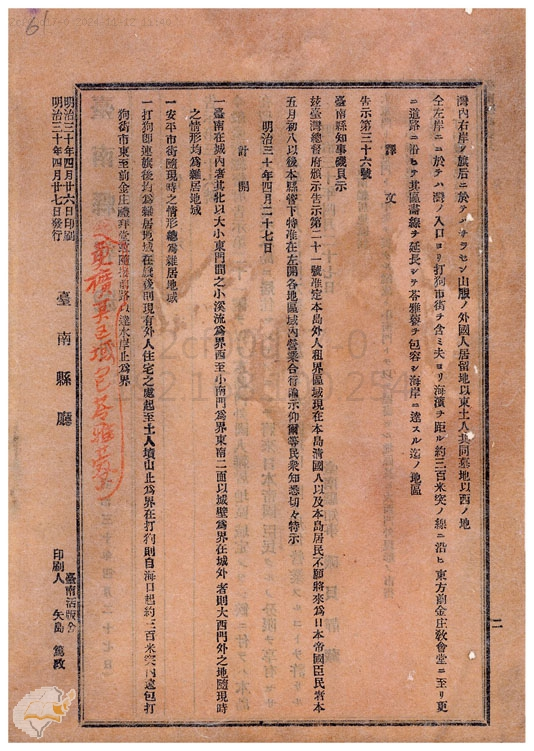 61
二
灣內右岸ノ旗后ニ於テ
山腹ノ外國人居留地以東土人共同墓地以西ノ地
仝左岸ニ於テハ灣ノ入口ヨリ打狗市街ヲ含ミ夫ヨリ海濱ヲ距ル約三百米突ノ線ニ沿ヒ東方前金庄敎會堂ニ至リ更
ニ道路ニ沿ヒテ其區畫線ヲ延長シテ苓雅寮ヲ包容シ海岸ニ達スル迄ノ地區
譯文
告示第三十六號
臺南縣知事磯貝示
玆臺灣總督府頒示告示第二十一號准定本島外人租界區域現在本島淸國人以及本島居民不願將來爲日本帝國臣民者本
五月初八以後本縣管下特准在左開各地區域內營業合行諭示仰爾等民衆知悉切々特示
明治三十年四月二十七日
計開
一臺南在城內者其北以大小東門間之小溪流爲界西至小南門爲界東南二面以城壁爲界在城外者則大西門外之地隨現時
之情形均爲雜居地域
一安平市街隨現時之情形總爲雜居地域
一打狗卽連旗後均爲雜居地域在旗後則現有外人住宅之處起至土人墳山止爲界在打狗則自海口起約三百米突內遠包打
狗街市東至前金庄禮拜堂
隨
路以達水岸止爲界
明治三十年四月廿六日印刷
明治三十年四月廿七日發行
臺南縣廳
臺南活版舍
印刷人 矢島 篤政